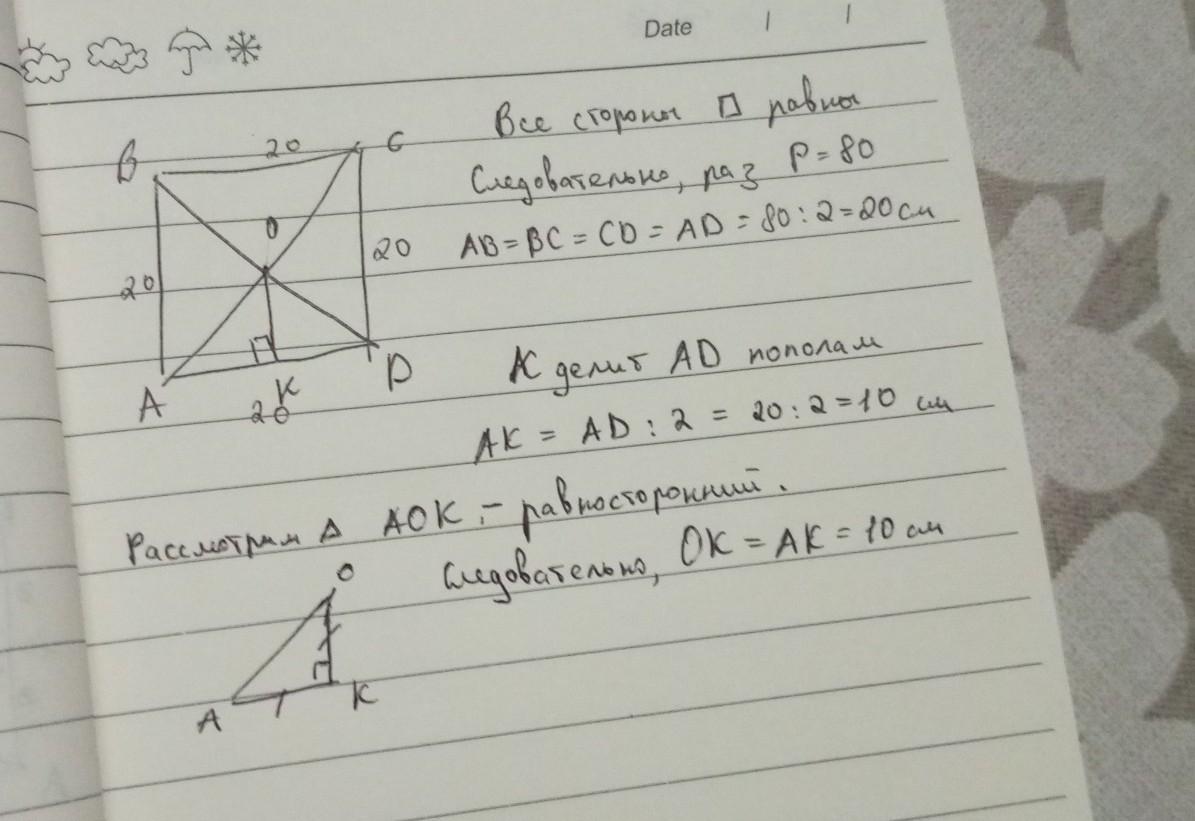 Date / /
Все стороны □ равны
Следовательно, раз P = 80
AB = BC = CD = AD = 80 : 2 = 20 см
B 20 C
O
20 20
A K D
20
K делит AD пополам
AK = AD : 2 = 20 : 2 = 10 см
Рассмотрим Δ AOK, – равносторонний.
Следовательно, OK = AK = 10 см
O
A K